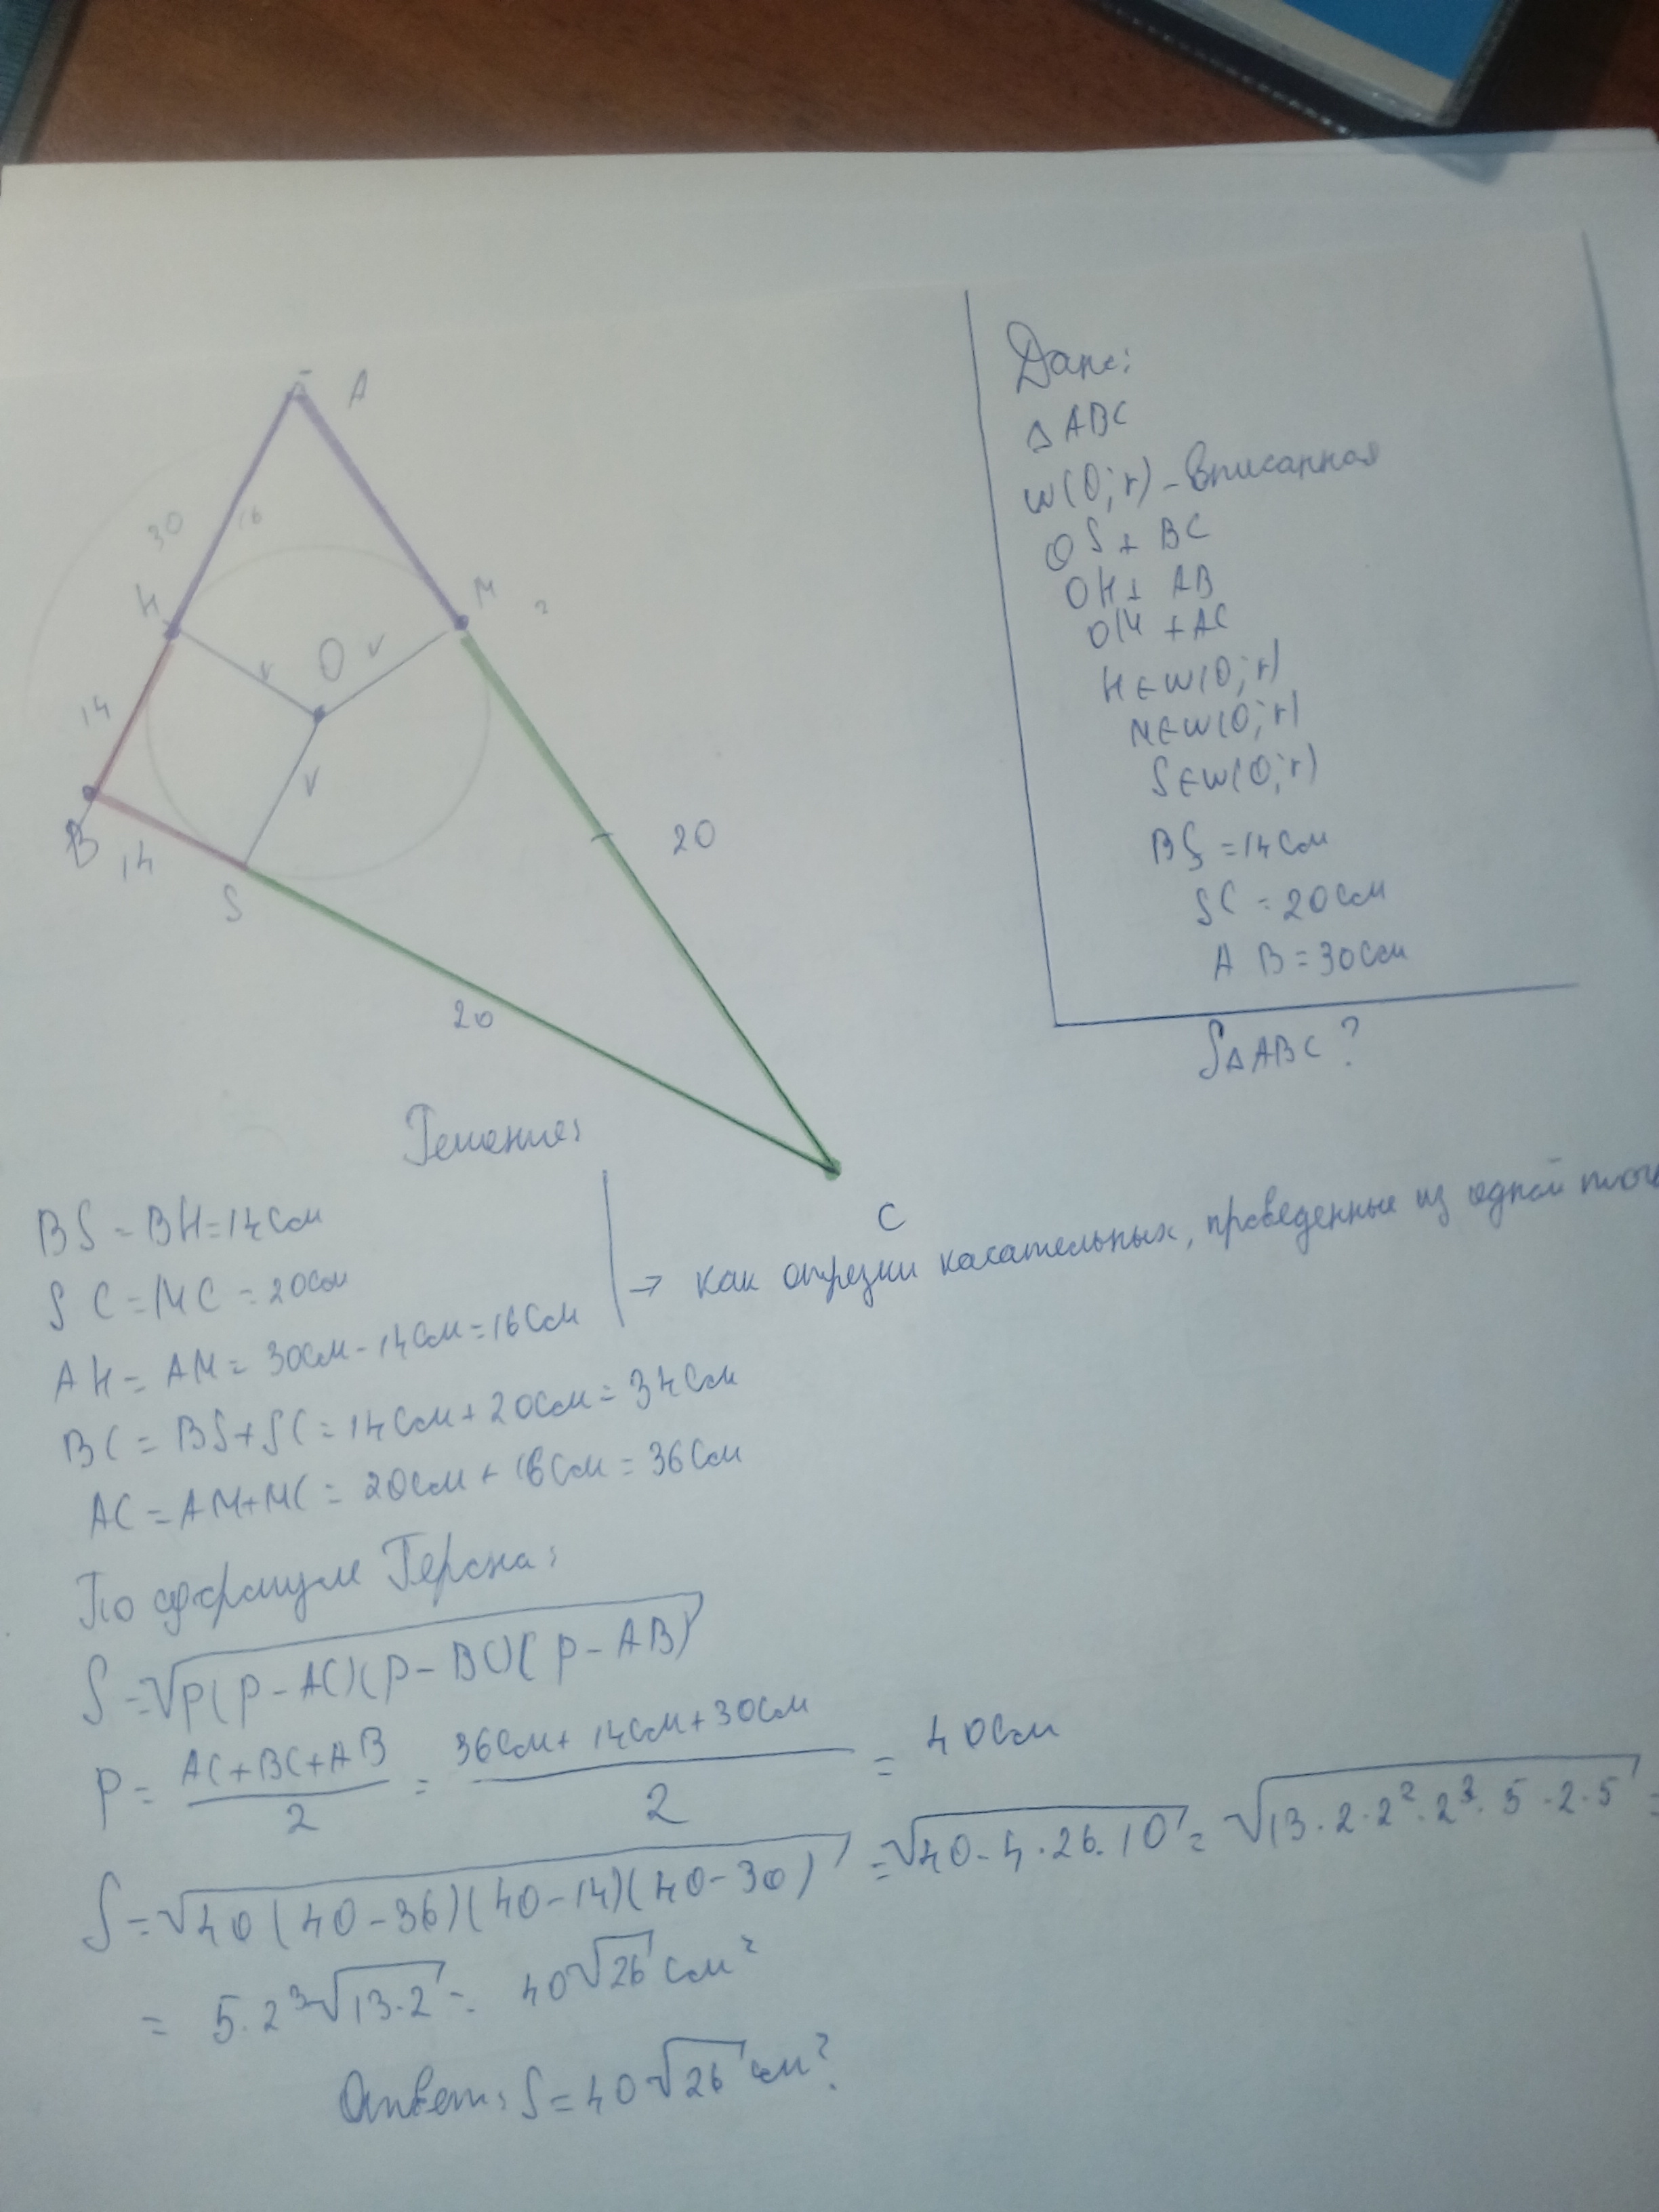 A
30
16
H
M
?
O
r
r
r
14
B
14
S
20
20
C
Дано:
Δ ABC
W(O; r) - вписанная
OS ⊥ BC
OH ⊥ AB
OM ⊥ AC
H ∈ W(O; r)
M ∈ W(O; r)
S ∈ W(O; r)
BS = 14 см
SC = 20 см
AB = 30 см
SΔABC ?
Решение:
BS = BH = 14 см
SC = MC = 20 см
AH = AM = 30 см - 14 см = 16 см
→ как отрезки касательных, проведенные из одной
BC = BS + SC = 14 см + 20 см = 34 см
AC = AM + MC = 20 см + 16 см = 36 см
По формуле Герона:
S = √p(p - AC)(p - BC)(p - AB)
P = (AC + BC + AB)/2 = (36 см + 14 см + 30 см)/2 = 40 см
S = √40(40 - 36)(40 - 14)(40 - 30) = √40 · 4 · 26 · 10 = √13 · 2 · 2² · 2³ · 5 · 2 · 5 =
= 5 · 2³√13 · 2 = 40√26 см²
Ответ: S = 40√26 см².